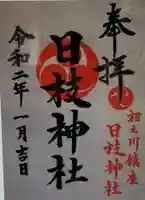 奉拝
相之川鎮座
日枝神社
日枝神社
令和二年一月吉日